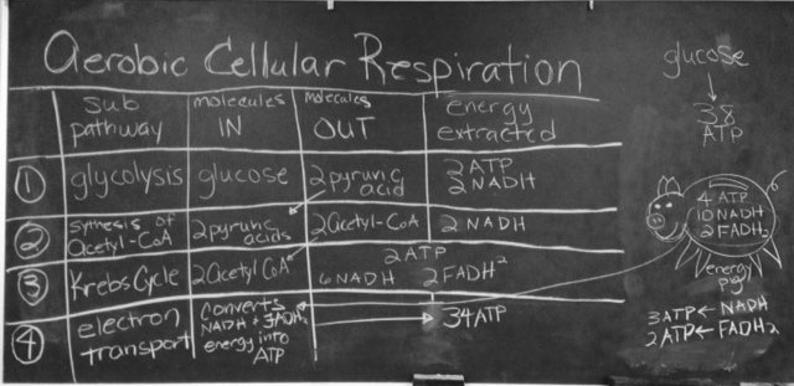 Aerobic Cellular Respiration
sub pathway
molecules IN
molecules OUT
energy extracted
① glycolysis
glucose
2 pyruvic acid
2 ATP
2 NADH
② synthesis of Acetyl-CoA
2 pyruvic acids
2 acetyl-CoA
2 NADH
③ Krebs Cycle
2 acetyl CoA
2 ATP
6 NADH 2 FADH²
④ electron transport
converts
NADH + FADH₂
energy into
ATP
34 ATP
glucose
↓
38
ATP
4 ATP
10 NADH
2 FADH₂
energy
pig
3 ATP ← NADH
2 ATP ← FADH₂